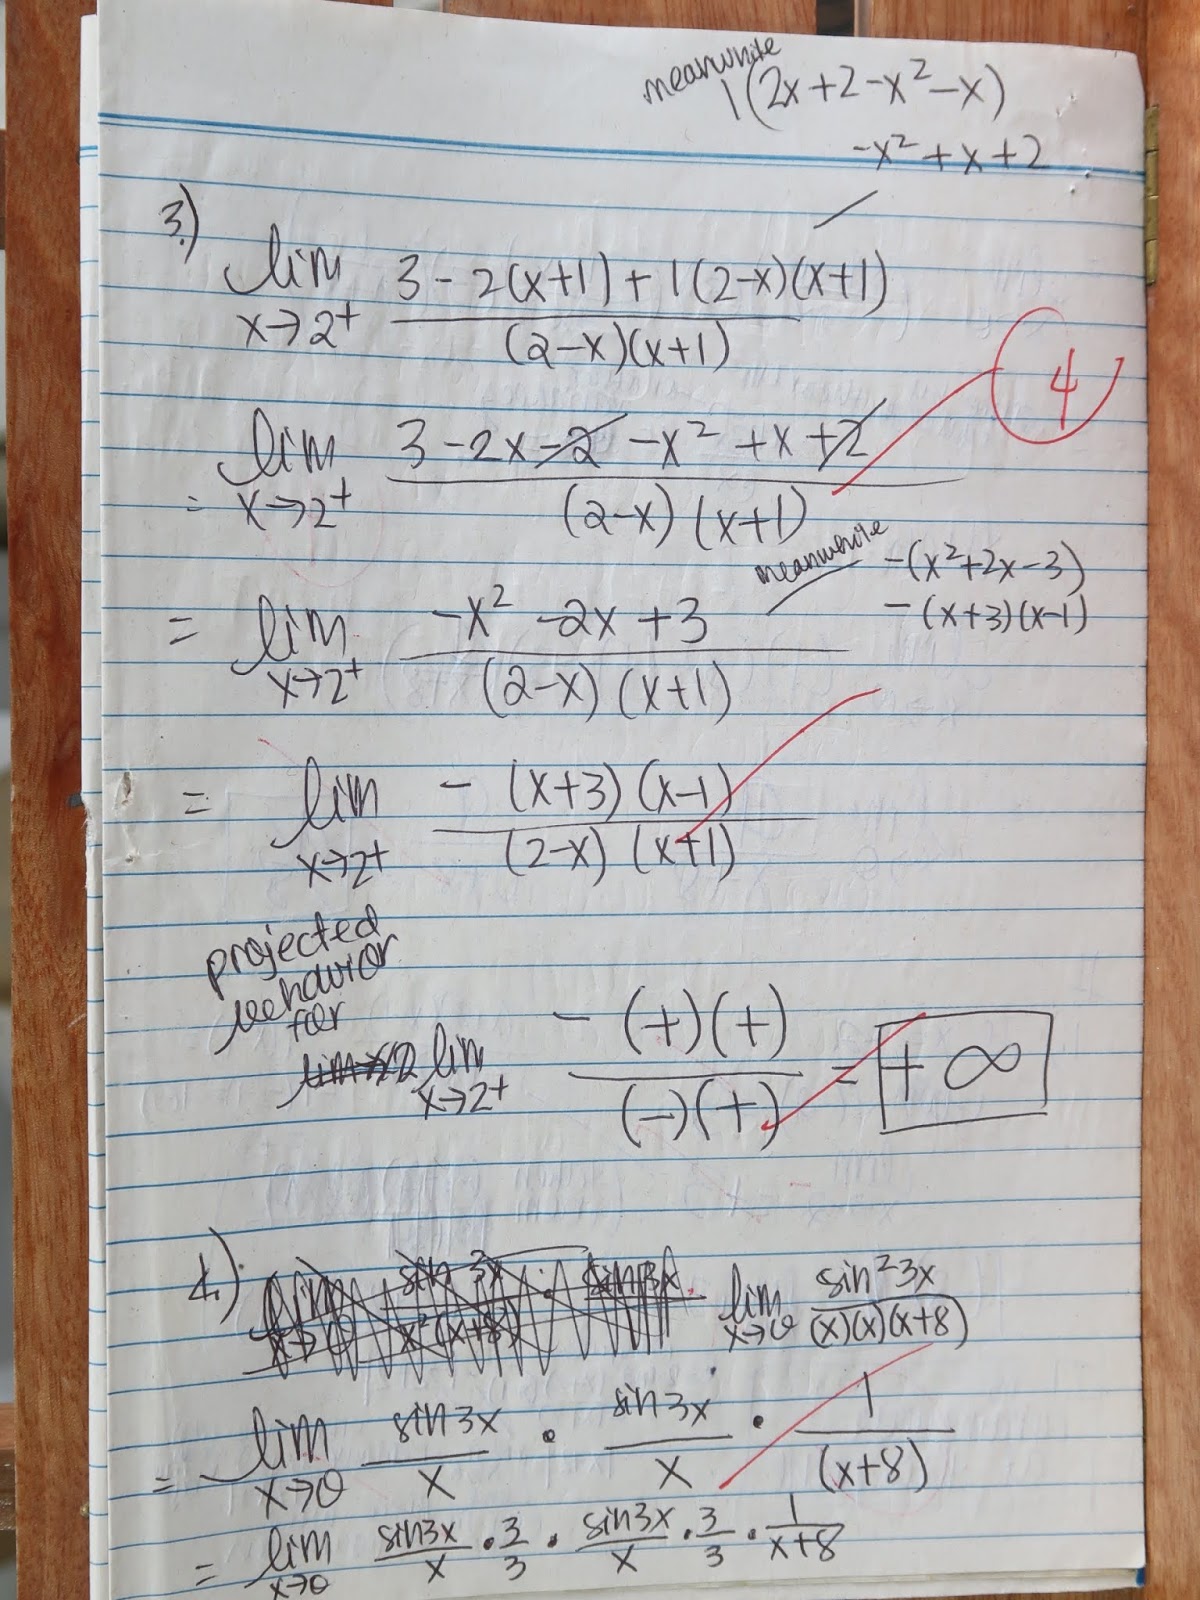 meanwhile
1(2x+2-x²-x)
-x²+x+2
3.)
lim x→2⁺ 3-2(x+1)+1(2-x)(x+1) / (2-x)(x+1)
4
= lim x→2⁺ 3-2x-2-x²+x+2 / (2-x)(x+1)
meanwhile -(x²+2x-3)
-(x+3)(x-1)
= lim x→2⁺ -x²-2x+3 / (2-x)(x+1)
= lim x→2⁺ -(x+3)(x-1) / (2-x)(x+1)
projected
behavior
for
lim x→2⁺ -(+)(+) / (-)(+) = +∞
4.) lim x→0 sin²3x / (x)(x)(x+8)
= lim x→0 sin3x/x · sin3x/x · 1/(x+8)
= lim x→0 sin3x/x · 3/3 · sin3x/x · 3/3 · 1/x+8